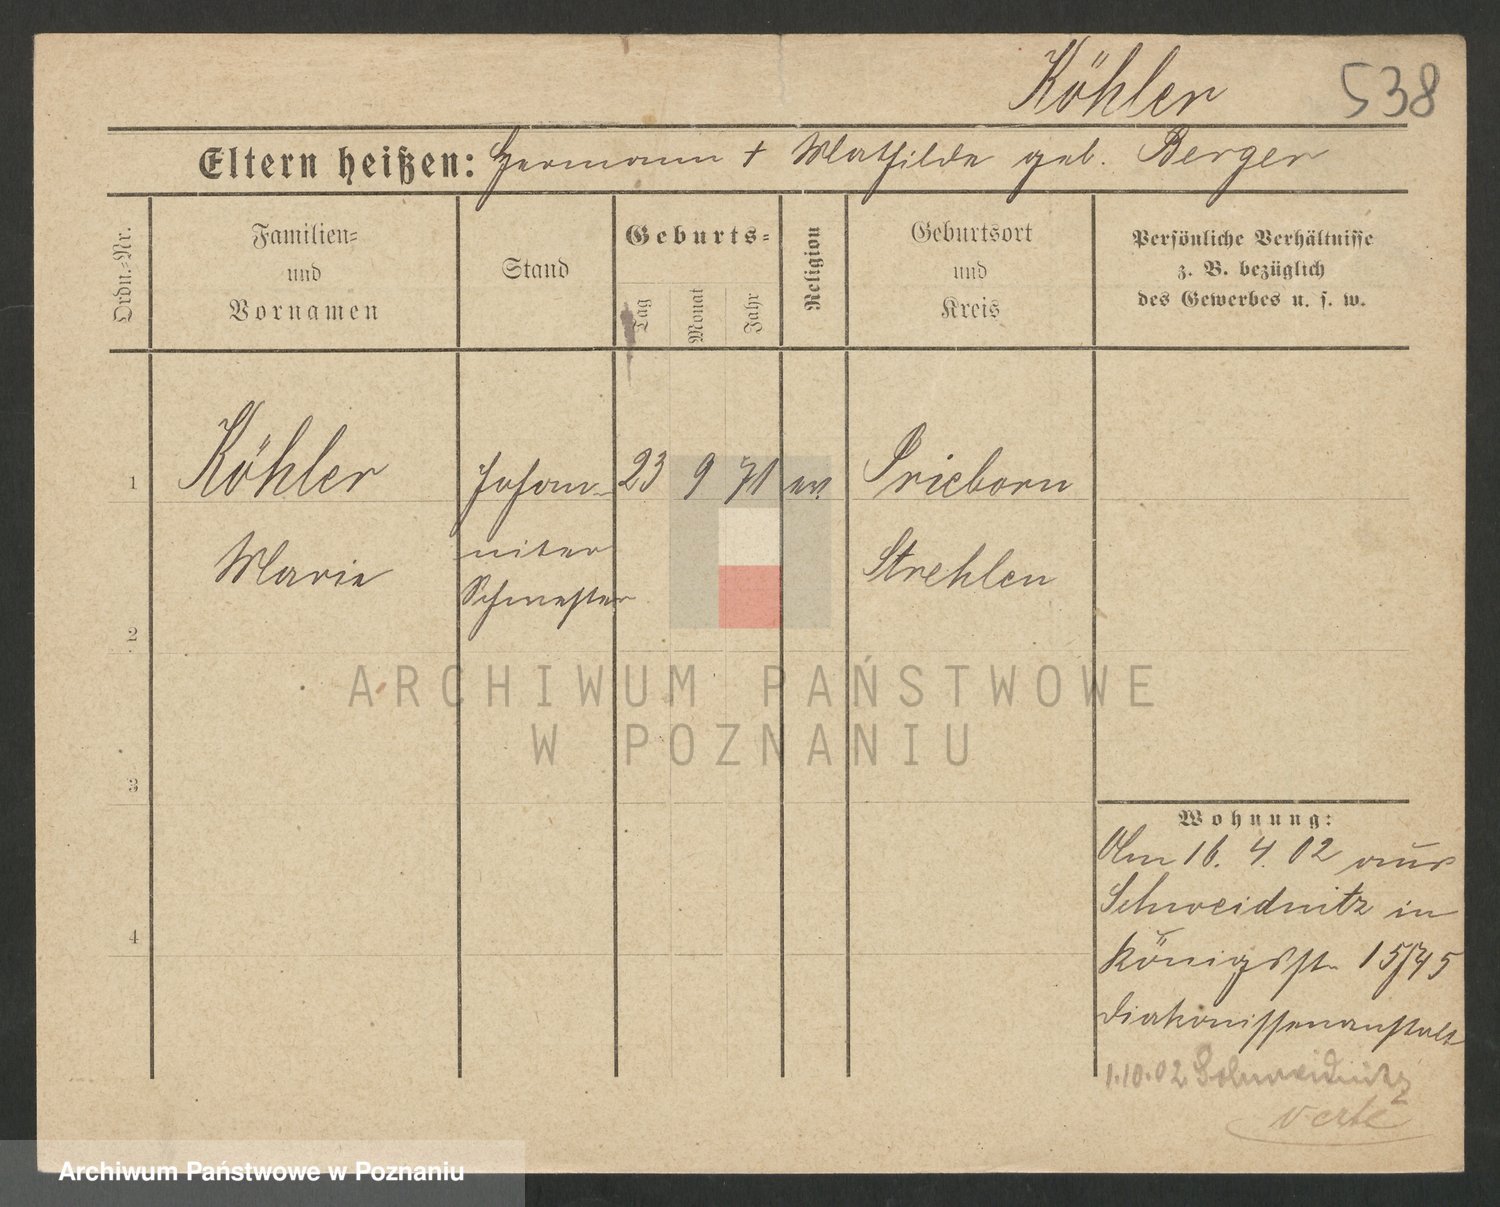 Köhler 538
Eltern heißen: Hermann + Mathilde geb. Berger
Ordn.-Nr.
Familien-
und
Vornamen
Stand
Geburts-
Tag
Monat
Jahr
Religion
Geburtsort
und
Kreis
Persönliche Verhältnisse
z. B. bezüglich
des Gewerbes u. s. w.
1 Köhler Johan- 23 9 71 ev. Prieborn
Marie niter Strehlen
Schwester
2
3
4
ARCHIWUM PAŃSTWOWE
W POZNANIU
Wohnung:
Am 16. 4. 02 aus
Schweidnitz in
Königsst. 15/45
Diakonissenanstalt
1.10.02 Schweidnitz
verte
Archiwum Państwowe w Poznaniu